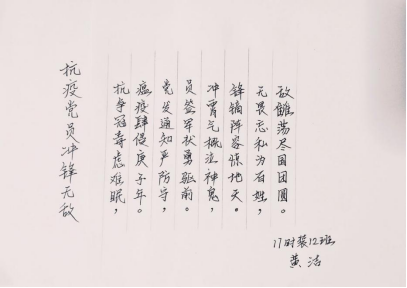 抗疫党员冲锋无敌
抗争冠毒虑难眠，
瘟疫肆侵庚子年。
党发通知严防守，
员签军状勇驱前。
冲霄气概泣神鬼，
锋镝阵容惊地天。
无畏忘私为百姓，
敌雠荡尽国团圆。
17时装12班
黄洁